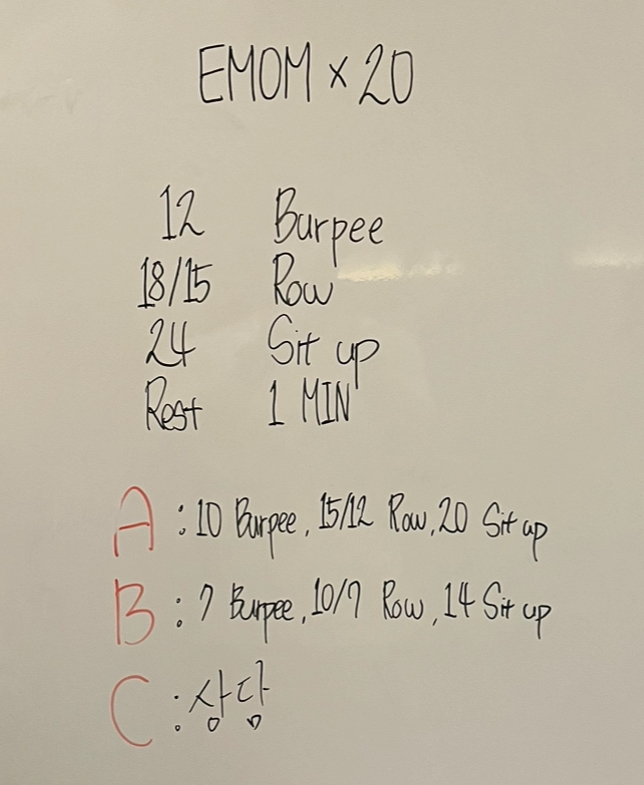 EMOM × 20
12 Burpee
18/15 Row
24 Sit up
Rest 1 MIN
A : 10 Burpee, 15/12 Row, 20 Sit up
B : 7 Burpee, 10/7 Row, 14 Sit up
C : 상담